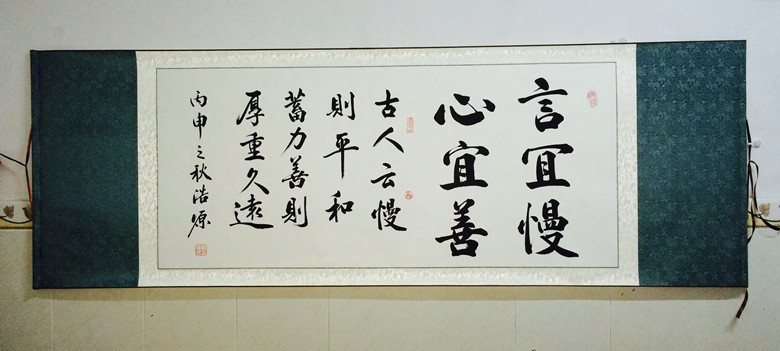 言宜慢
心宜善
古人云慢
則平和
蓄力善則
厚重久遠
丙申之秋浩源